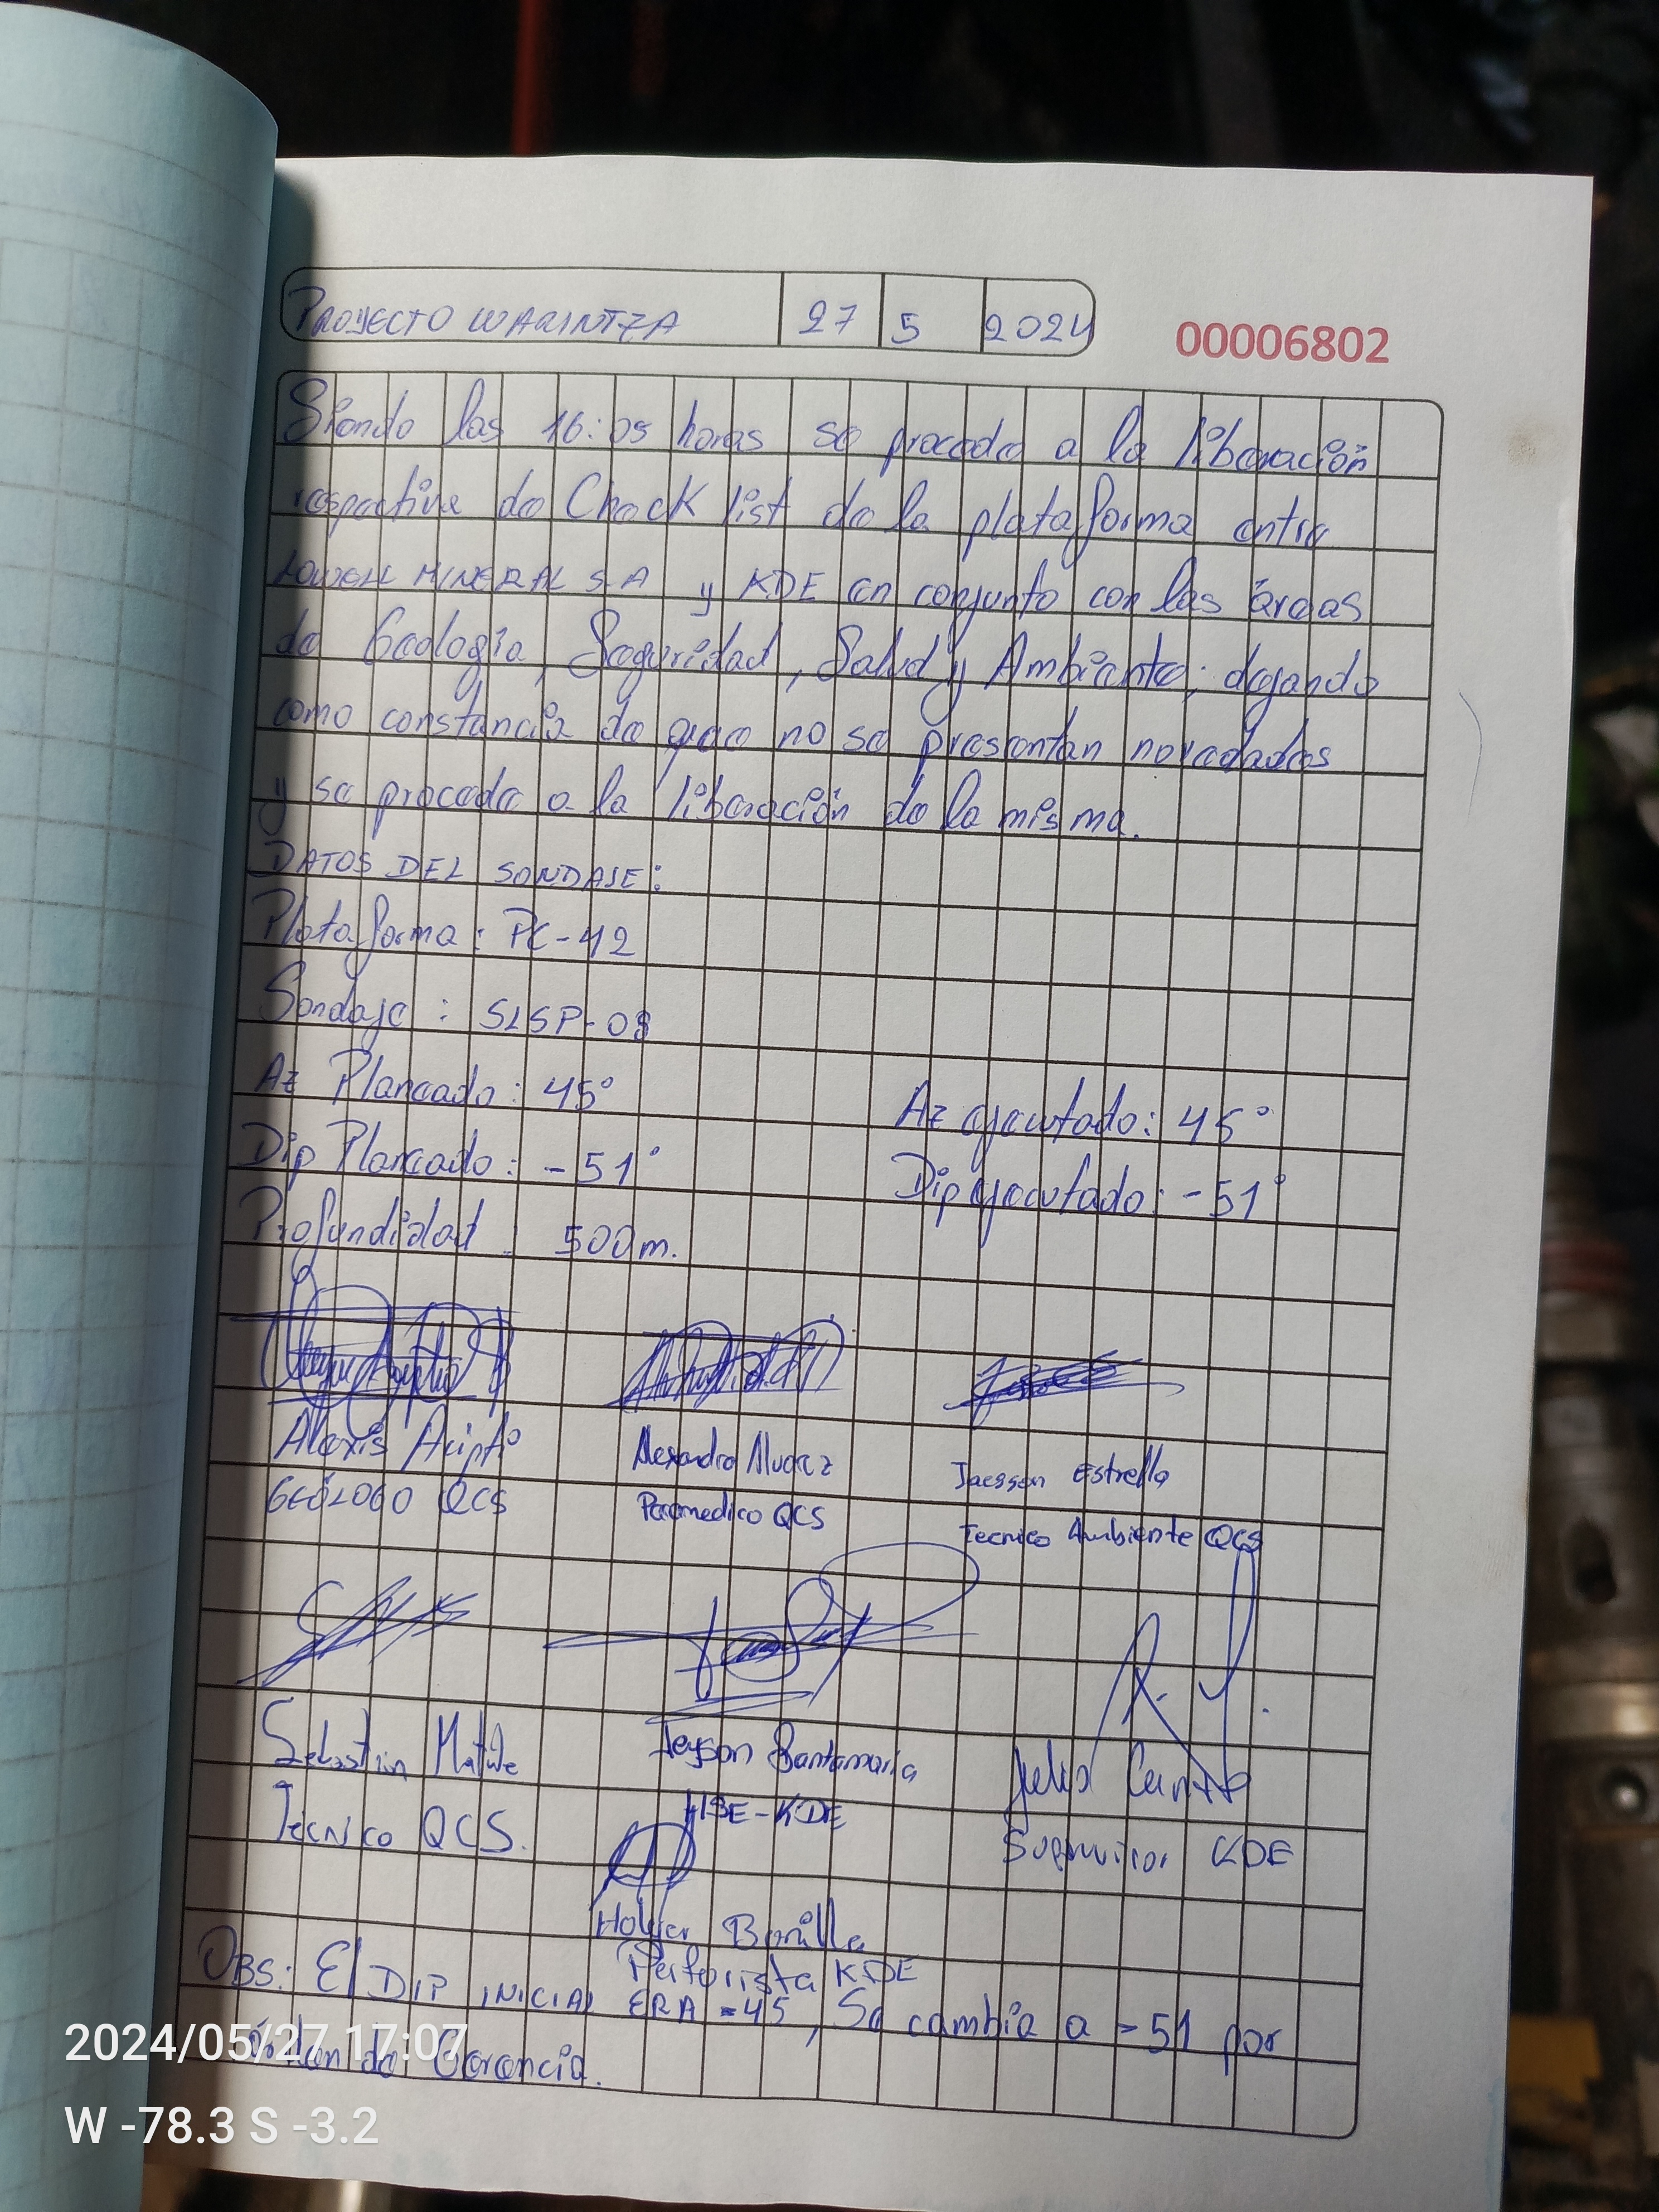 PROYECTO WARINTZA 27 5 2024
00006802
Siendo las 16:05 horas se procede a la liberación
respectiva de Check list de la plataforma entre
LOWELL MINERAL S.A y KDE en conjunto con las áreas
de Geología, Seguridad, Salud y Ambiente; dejando
como constancia de que no se presentan novedades
y se procede a la liberación de la misma.
DATOS DEL SONDAJE:
Plataforma: PC-42
Sondaje: SLSP-08
Az Planeado: 45° Az ejecutado: 45°
Dip Planeado: -51° Dip ejecutado: -51°
Profundidad 500m.
Alexis
GEÓLOGO QCS
Alexandro Alvarez
Paramedico QCS
Jaesson Estrella
Tecnico Ambiente QCS
Sebastian
Técnico QCS.
Jeyson Santamaria
HSE-KDE
Supervisor KDE
Holger Bonilla
Perforista KDE
OBS: El DIP INICIAL ERA -45, Se cambia a -51 por
órden de Gerencia.
2024/05/27 17:07
W -78.3 S -3.2